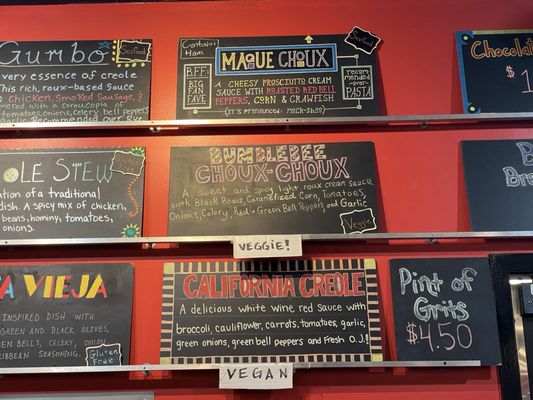 Gumbo
Seafood
very essence of creole
This rich, roux-based sauce
Chicken, Smoked Sausage
with a cornucopia of
tomatoes, onions, celery, bell peppers
Garlic Recommended
Contains
Ham
MAQUE CHOUX
Seafood
B.F.F.
BIG
FAN
FAVE
A CHEESY PROSCIUTTO CREAM
SAUCE WITH ROASTED RED BELL
PEPPERS, CORN & CRAWFISH
(IT'S PRONOUNCED: MOCK-SHOO)
recom-
mended
over
PASTA
Chocolat
$1
OLE STEW
Gluten
Free
ation of a traditional
dish. A spicy mix of chicken,
beans, hominy, tomatoes,
onions.
BUMBLEBEE
CHOUX-CHOUX
A sweet and spicy light roux cream sauce
with Black Beans, Caramelized Corn, Tomatoes,
Onions, Celery, Red & Green Bell Peppers, and Garlic
Veggie
B
Brea
VEGGIE!
A VIEJA
INSPIRED DISH WITH
GREEN AND BLACK OLIVES,
BELLS, CELERY, ONION
IBBEAN SEASONING
Gluten
Free
CALIFORNIA CREOLE
A delicious white wine red Sauce with
broccoli, cauliflower, carrots, tomatoes, garlic,
green onions, green bell peppers and Fresh O.J.!
Pint of
Grits
$4.50
VEGAN